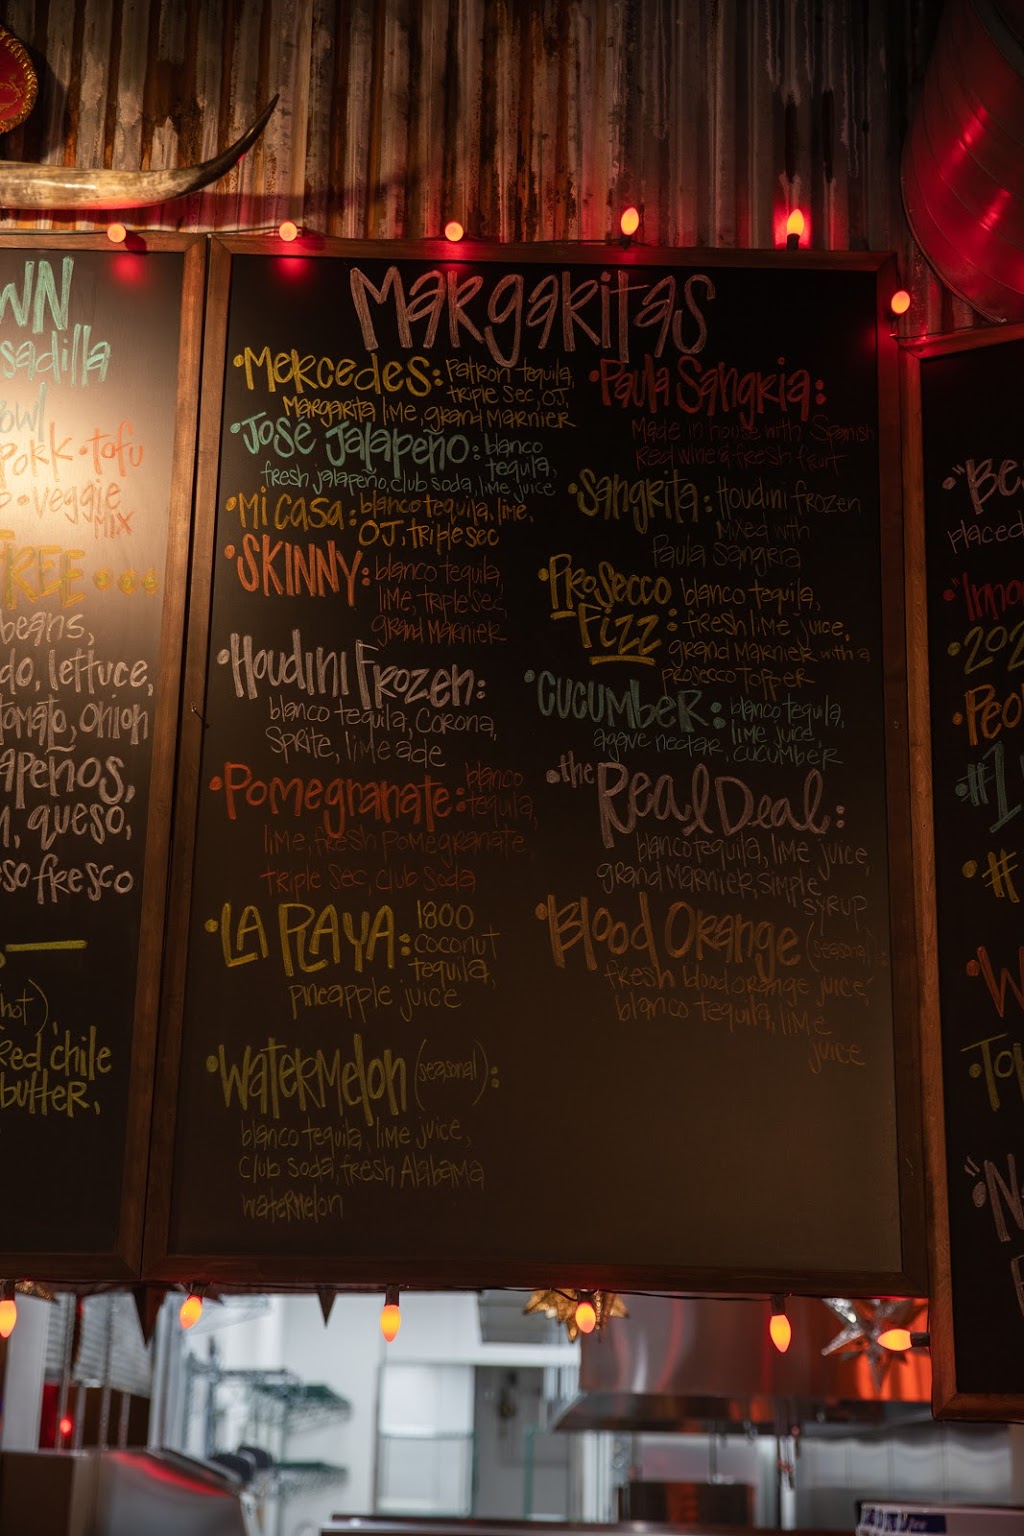 WN
sadilla
owl
Pork • tofu
• veggie
mix
FREE
beans,
do, lettuce,
tomato, onion
apeños,
queso,
so fresco
(hot),
Red chile
butter,
Margaritas
• Mercedes: Patron tequila,
triple sec, OJ,
Margarita lime, grand Marnier
• José Jalapeño: blanco
tequila,
fresh jalapeño, club soda, lime juice
• Mi Casa: blanco tequila, lime,
OJ, triple sec
• SKINNY: blanco tequila,
lime, triple sec,
grand Marnier
• Houdini Frozen:
blanco tequila, Corona,
Sprite, limeade
• Pomegranate: blanco
tequila,
lime, fresh pomegranate,
triple sec, club soda
• LA PLAYA: 1800
coconut
tequila,
pineapple juice
• Watermelon (seasonal):
blanco tequila, lime juice,
club soda, fresh Alabama
watermelon
• Paula Sangria:
Made in house with Spanish
Red wine & fresh fruit
• Sangrita: Houdini frozen
Mixed with
Paula Sangria
• Prosecco Fizz: blanco tequila,
fresh lime juice,
grand Marnier with a
prosecco topper
• Cucumber: blanco tequila,
lime juice,
agave nectar, cucumber
• the Real Deal:
blanco tequila, lime juice,
grand Marnier, simple
syrup
• Blood Orange (seasonal):
fresh blood orange juice,
blanco tequila, lime
juice
placed
202
Peo
#1
#